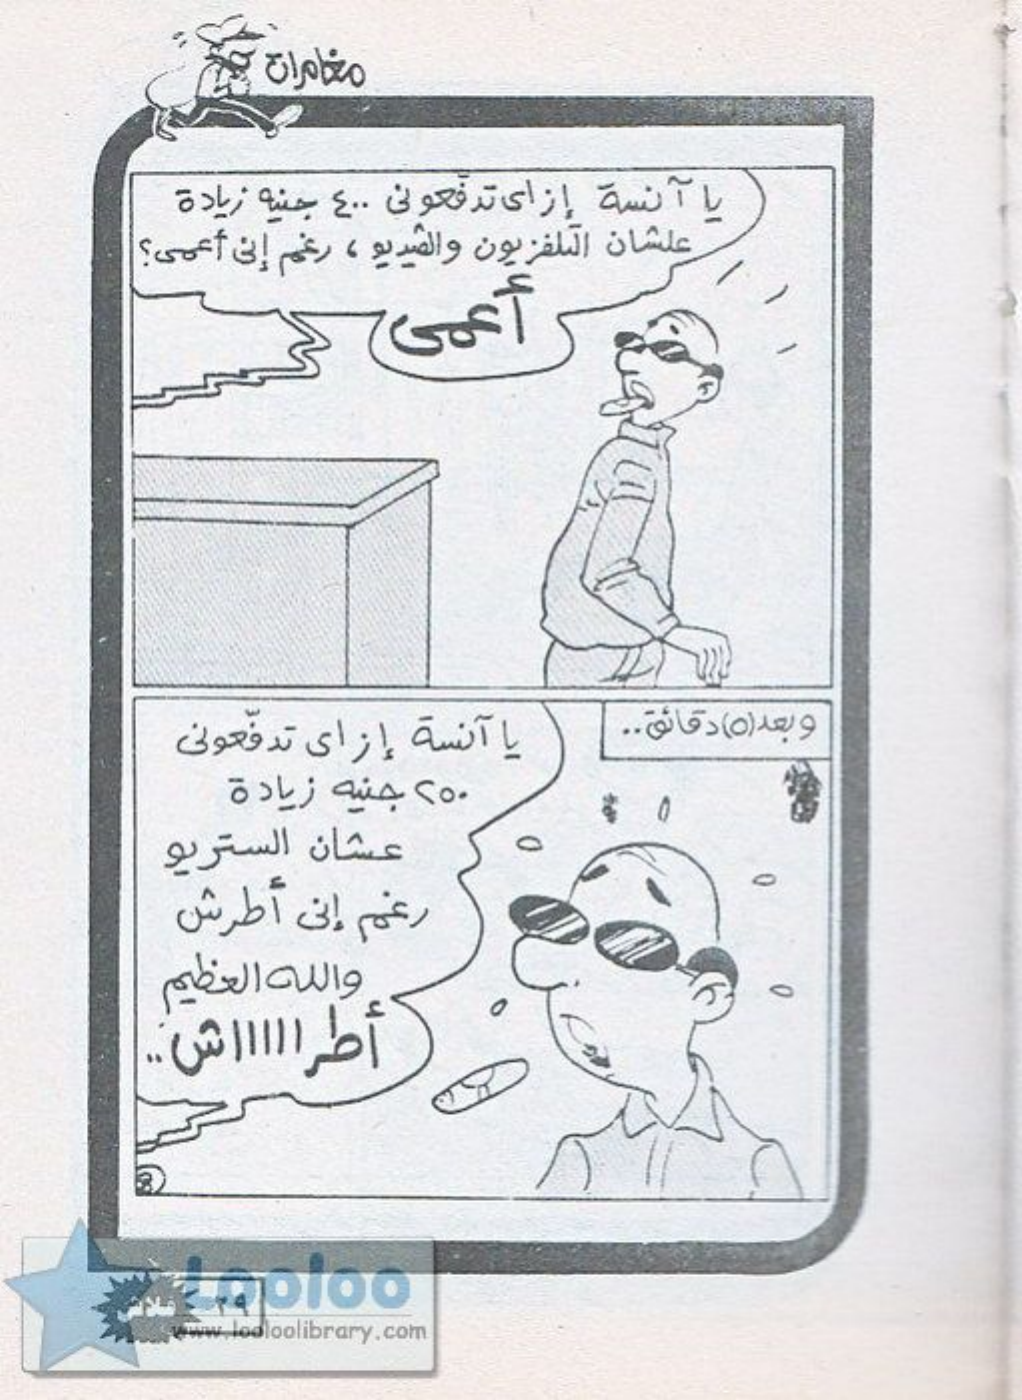 مغامرات
يا آنسة إزاى تدفّعونى ٤٠٠ جنيه زيادة
علشان التلفزيون والفيديو ، رغم إنى أعمى؟
أعمى
وبعد (٥) دقائق..
يا آنسة إزاى تدفّعونى
٢٥٠ جنيه زيادة
عشان الستريو
رغم إنى أطرش
والله العظيم
أطرااااااش..
٢٩
فلاش
Looloo
www.looloolibrary.com